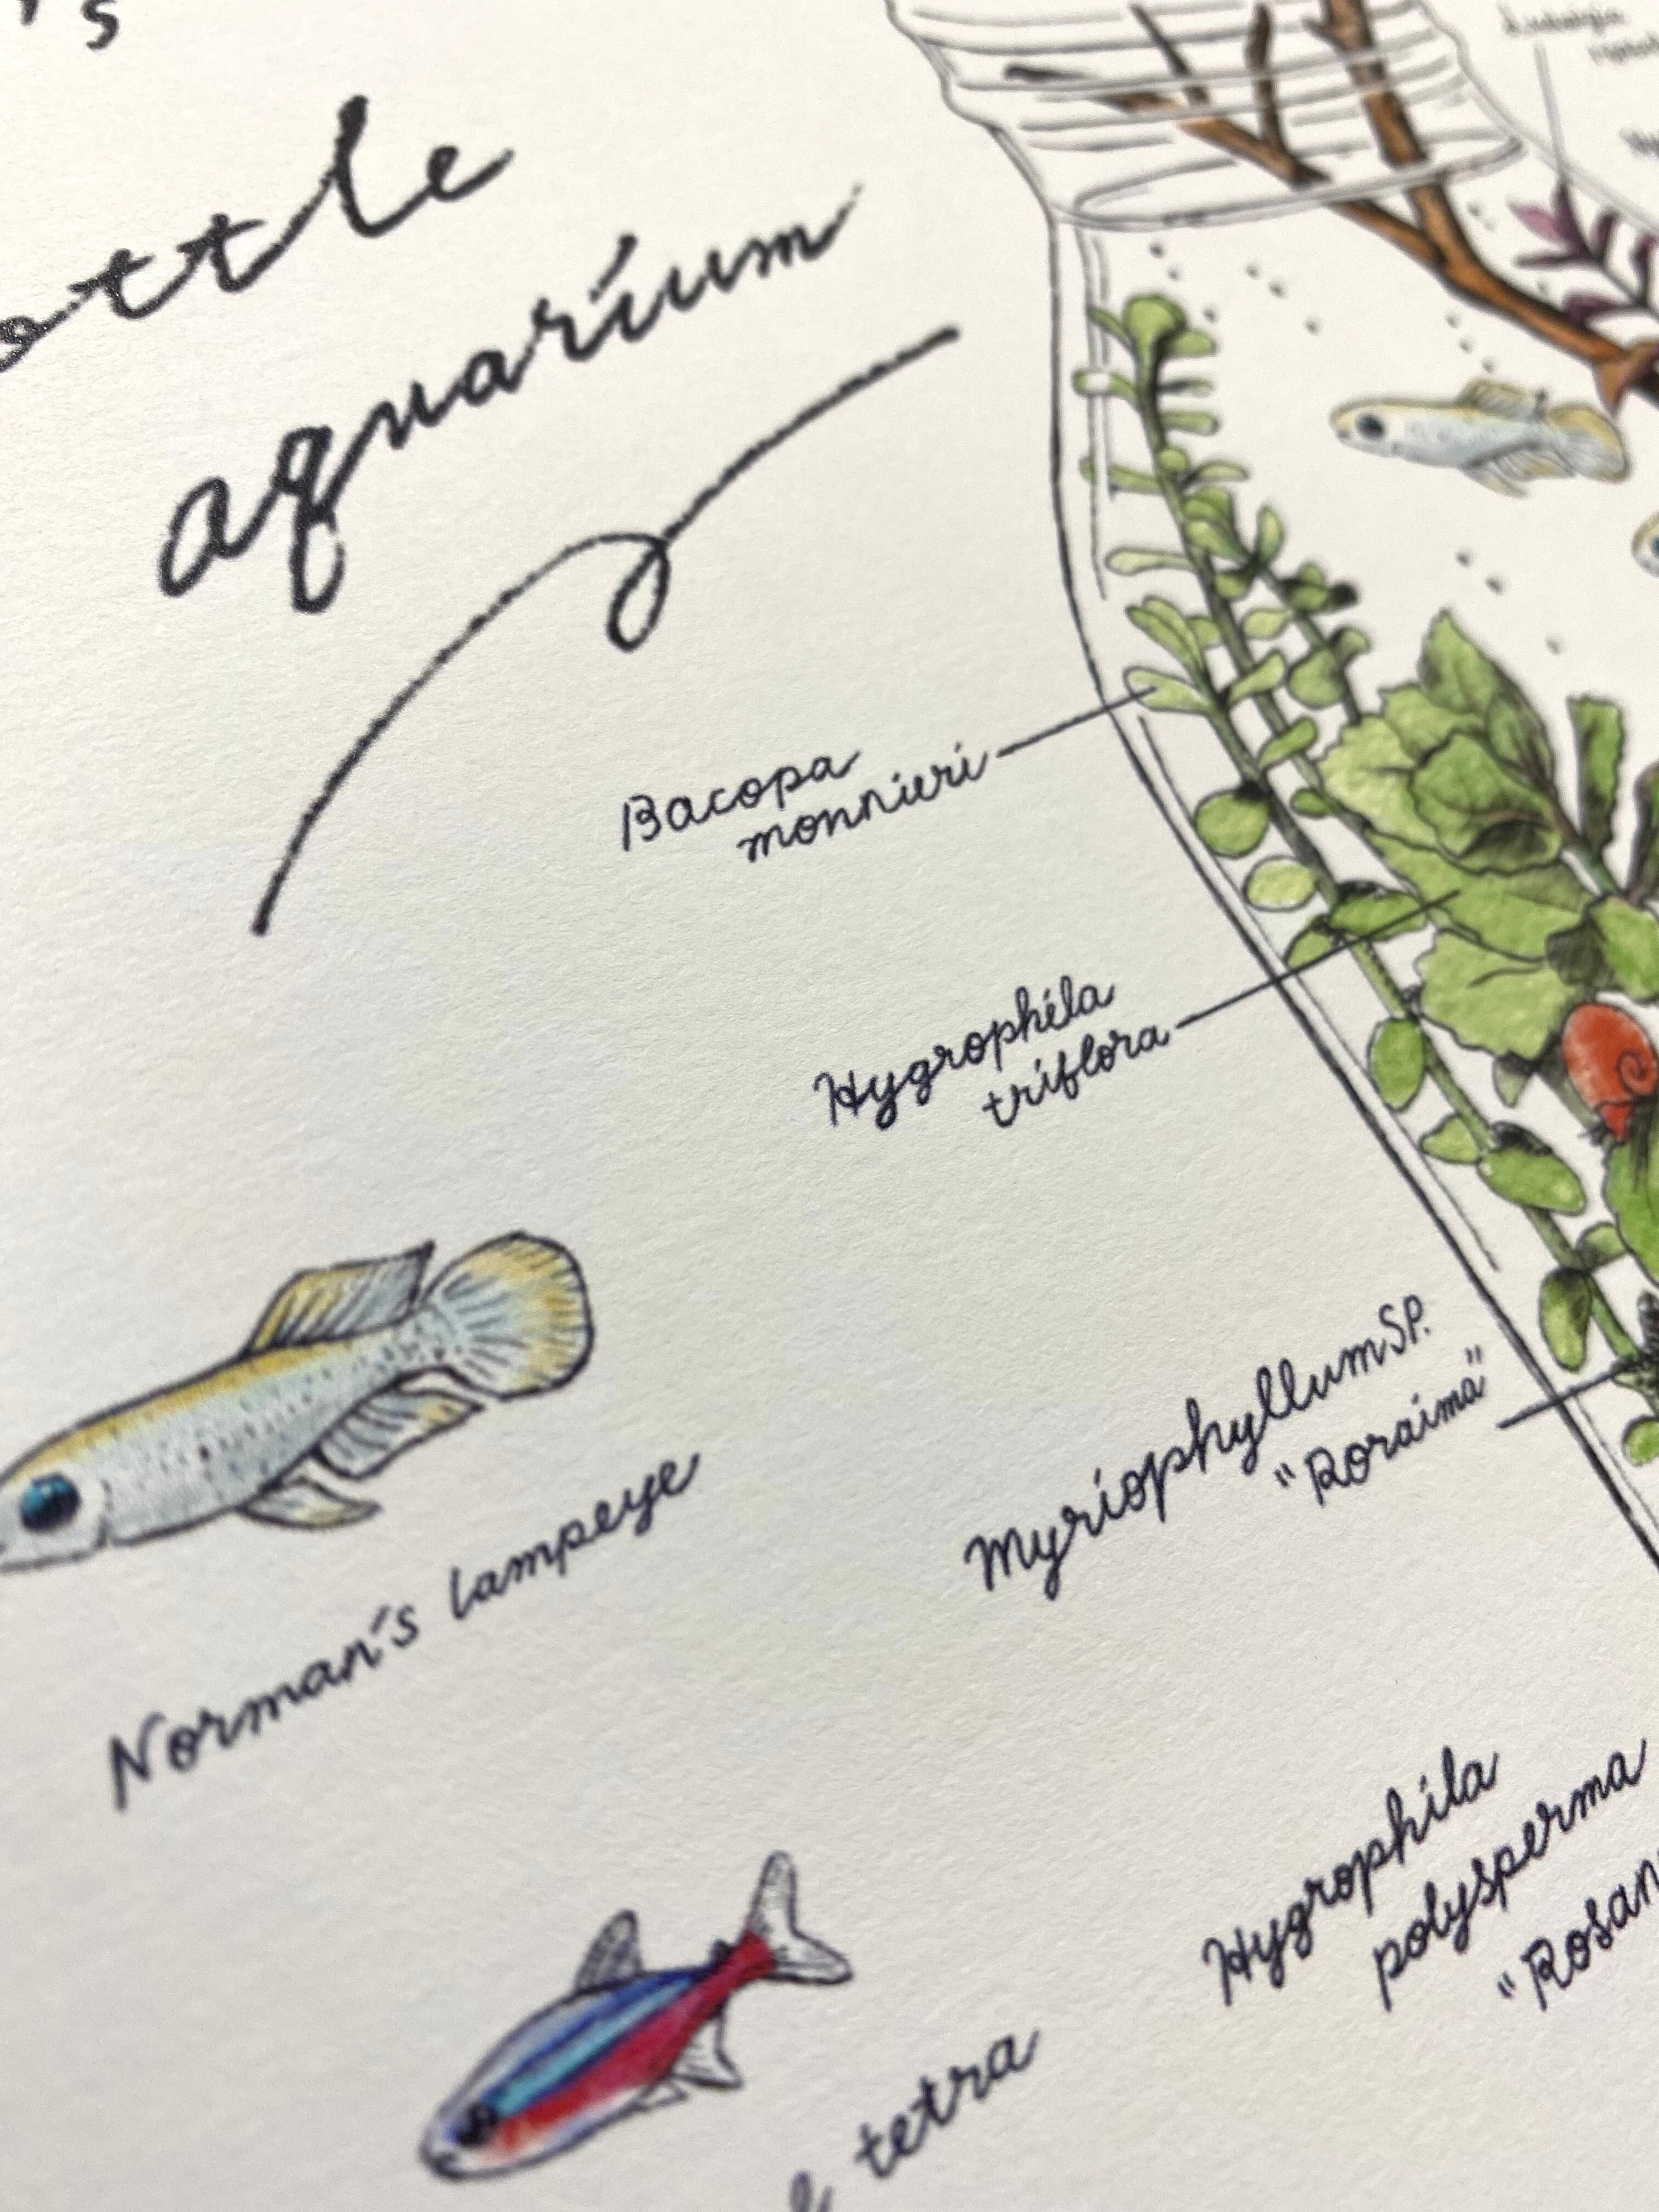 aquarium
Bacopa
monnieri
Hygrophila
triflora
Myriophyllum SP.
"Roraima"
Norman's lampeye
Hygrophila
polysperma
tetra